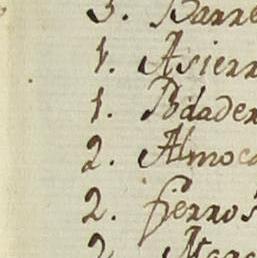 3. Barre
1. Asierr
1. Bdader
2. Almoca
2. fierros
2.